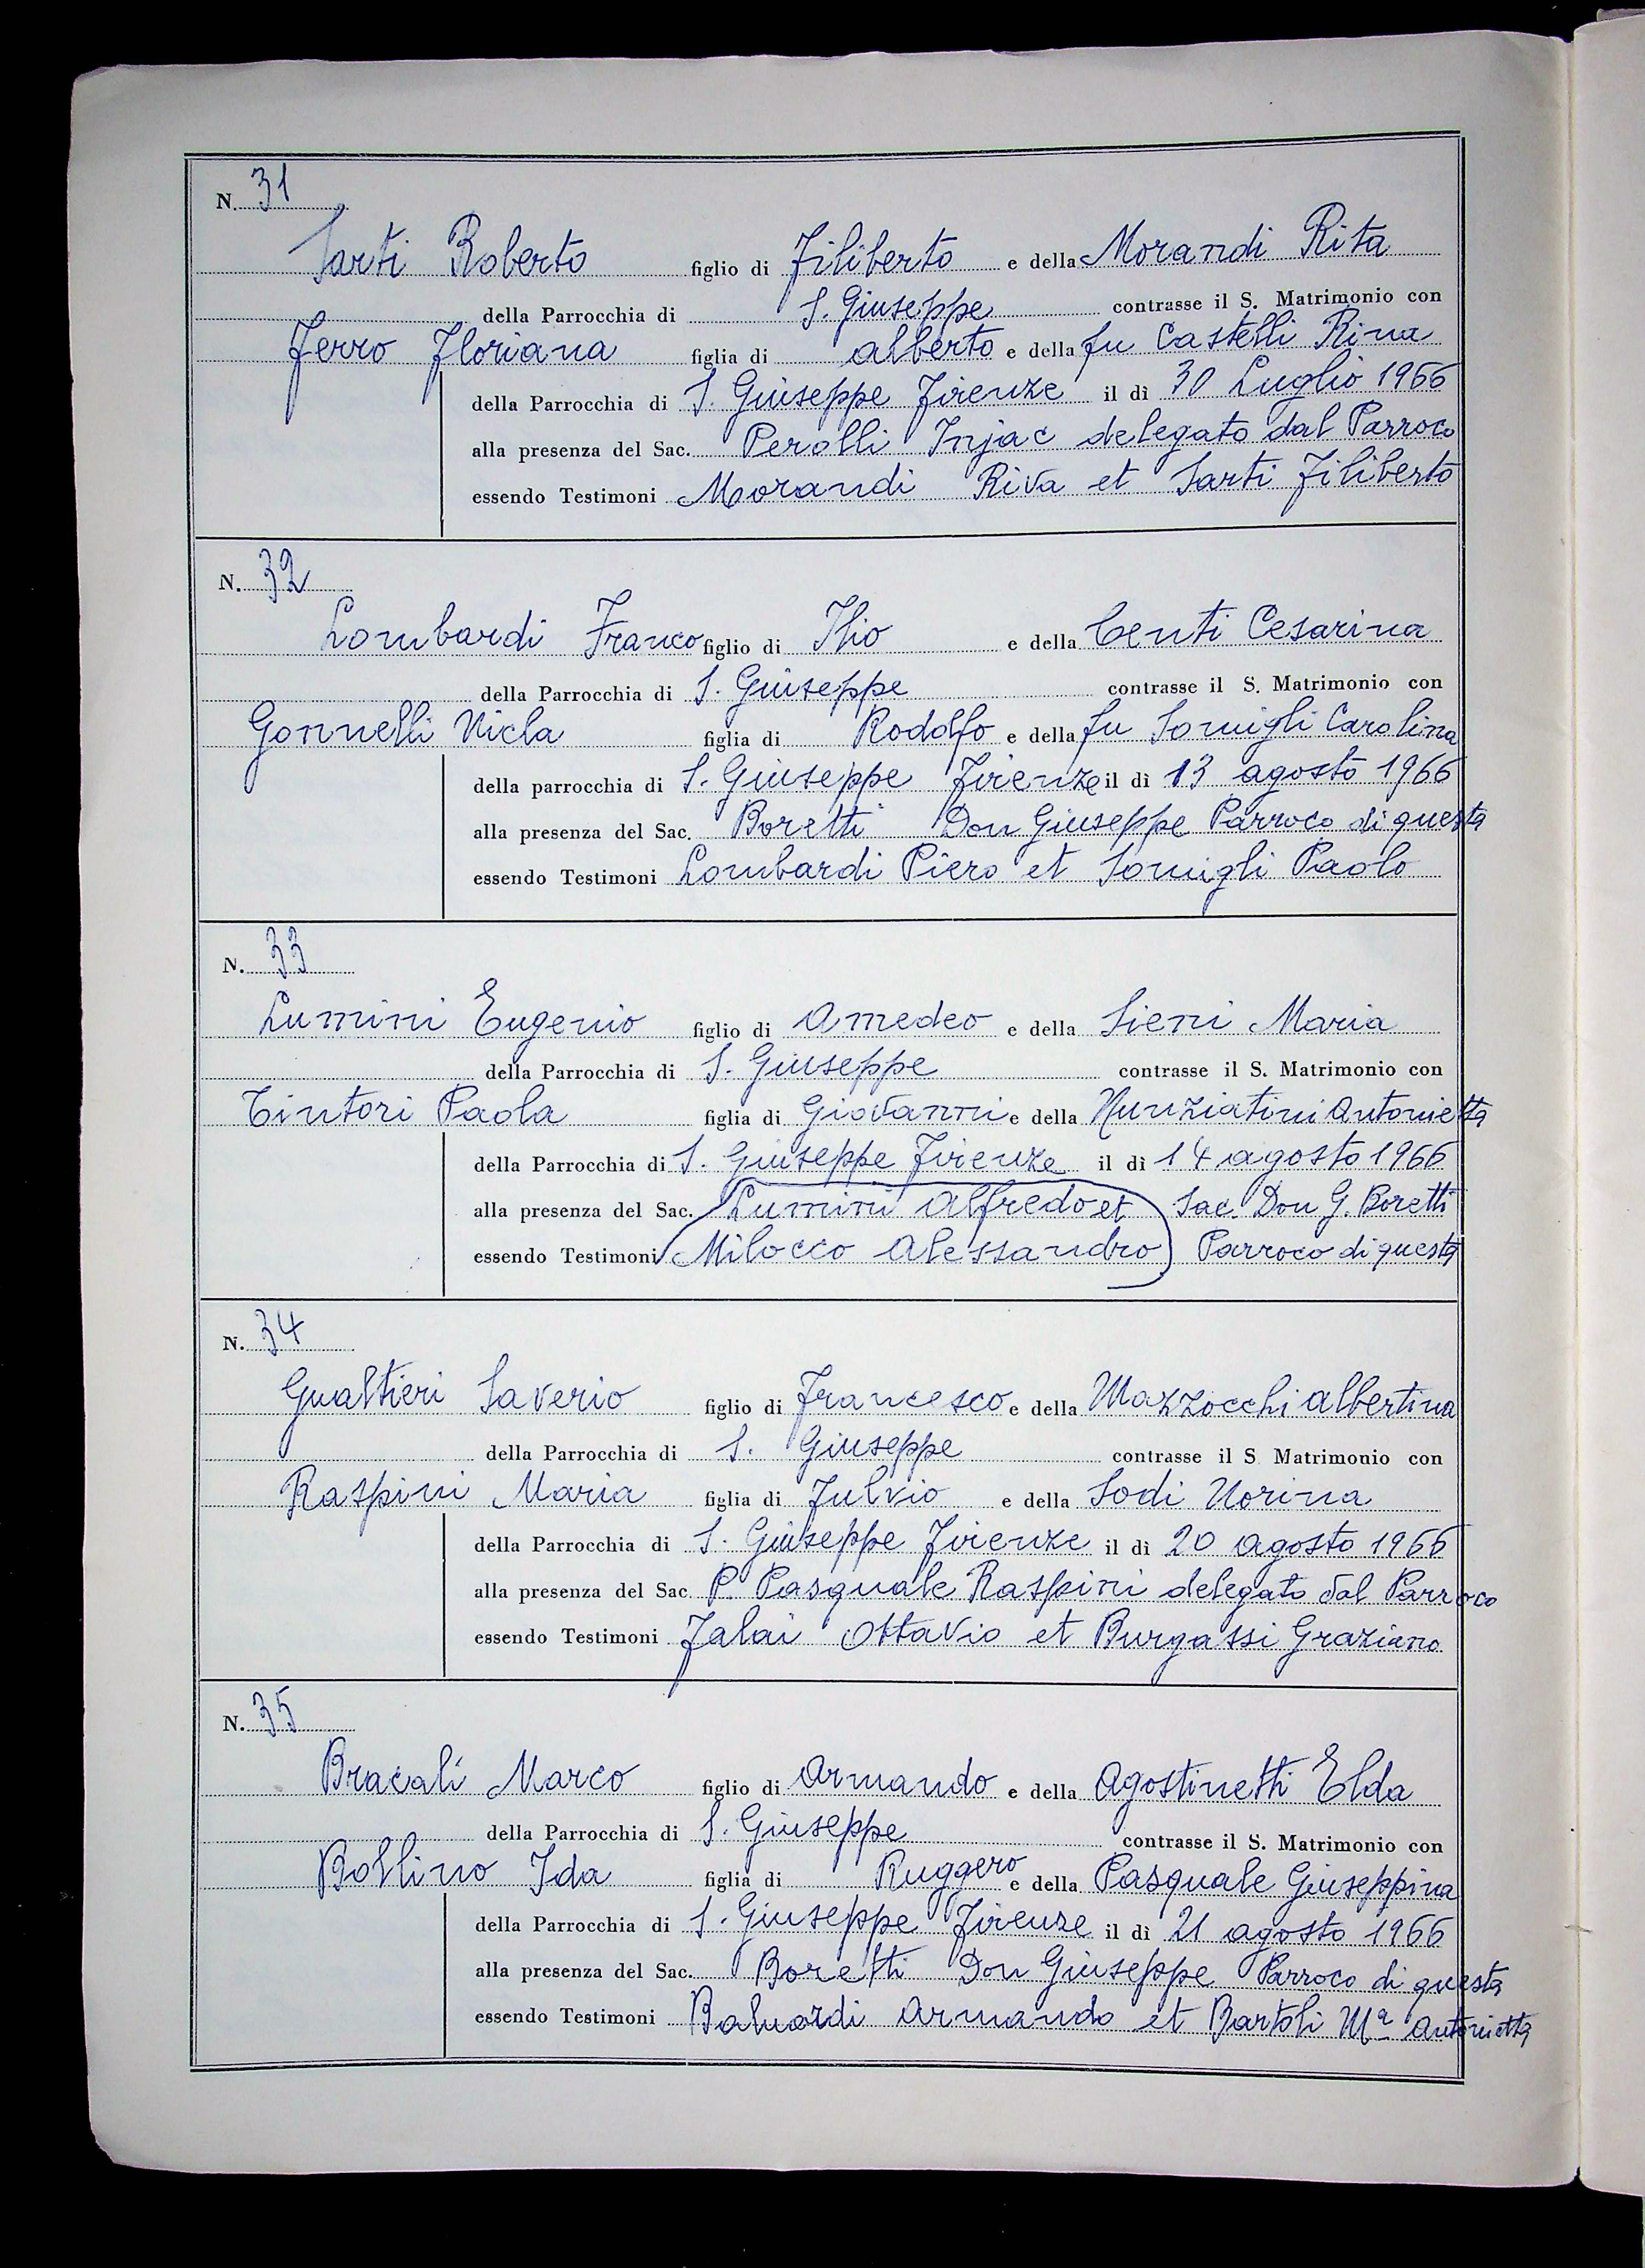 N. 31
Sarti Roberto figlio di Filiberto e della Morandi Rita
della Parrocchia di S. Giuseppe contrasse il S. Matrimonio con
Ferro Floriana figlia di Alberto e della fu Castelli Rina
della Parrocchia di S. Giuseppe Firenze il dì 30 Luglio 1966
alla presenza del Sac. Perolli Injac delegato dal Parroco
essendo Testimoni Morandi Riva et Sarti Filiberto
N. 32
Lombardi Franco figlio di Ilio e della Centi Cesarina
della Parrocchia di S. Giuseppe contrasse il S. Matrimonio con
Gonnelli Nicla figlia di Rodolfo e della fu Somigli Carolina
della parrocchia di S. Giuseppe Firenze il dì 13 agosto 1966
alla presenza del Sac. Boretti Don Giuseppe Parroco di questa
essendo Testimoni Lombardi Piero et Somigli Paolo
N. 33
Lumini Eugenio figlio di Amedeo e della Sieni Maria
della Parrocchia di S. Giuseppe contrasse il S. Matrimonio con
Tintori Paola figlia di Giovanni e della Nunziatini Antonietta
della Parrocchia di S. Giuseppe Firenze il dì 14 agosto 1966
alla presenza del Sac. Lumini Alfredo et Sac. Don G. Boretti
essendo Testimoni Milocco Alessandro Parroco di questa
N. 34
Gualtieri Saverio figlio di Francesco e della Mazzocchi Albertina
della Parrocchia di S. Giuseppe contrasse il S Matrimonio con
Raspini Maria figlia di Fulvio e della Sodi Norina
della Parrocchia di S. Giuseppe Firenze il dì 20 agosto 1966
alla presenza del Sac P. Pasquale Raspini delegato dal Parroco
essendo Testimoni Falai Ottavio et Burgassi Graziano
N. 35
Bracali Marco figlio di Armando e della Agostinetti Elda
della Parrocchia di S. Giuseppe contrasse il S. Matrimonio con
Bollino Ida figlia di Ruggero e della Pasquale Giuseppina
della Parrocchia di S. Giuseppe Firenze il dì 21 agosto 1966
alla presenza del Sac. Boretti Don Giuseppe Parroco di questa
essendo Testimoni Armando et Bartoli Mª Antonietta